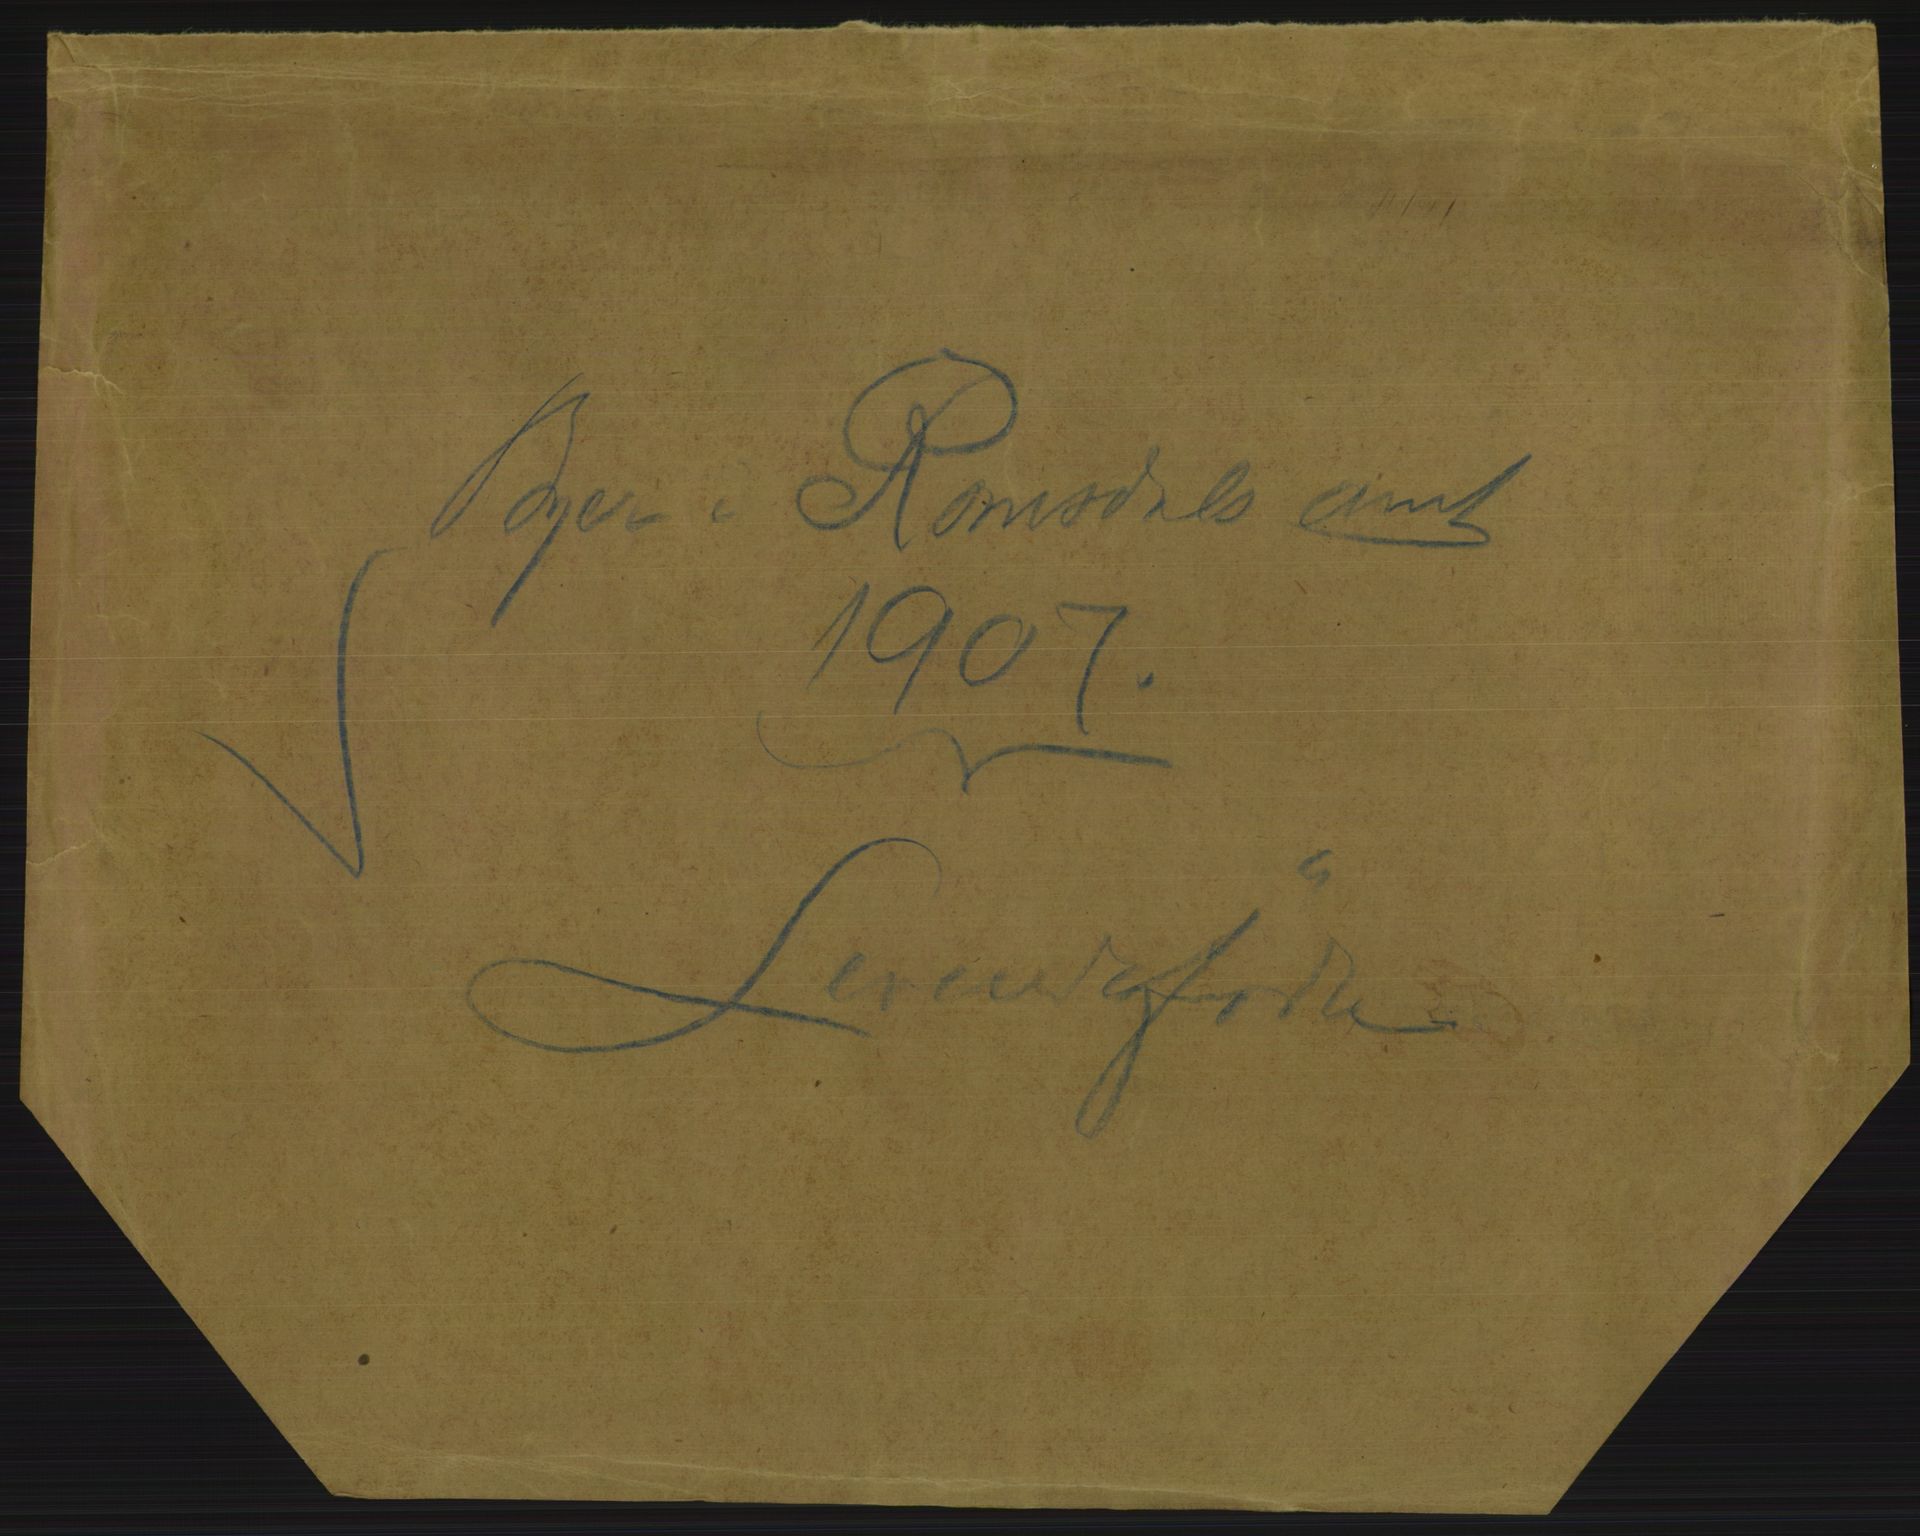 Byer i Romsdals amt
1907.
Levendefödte